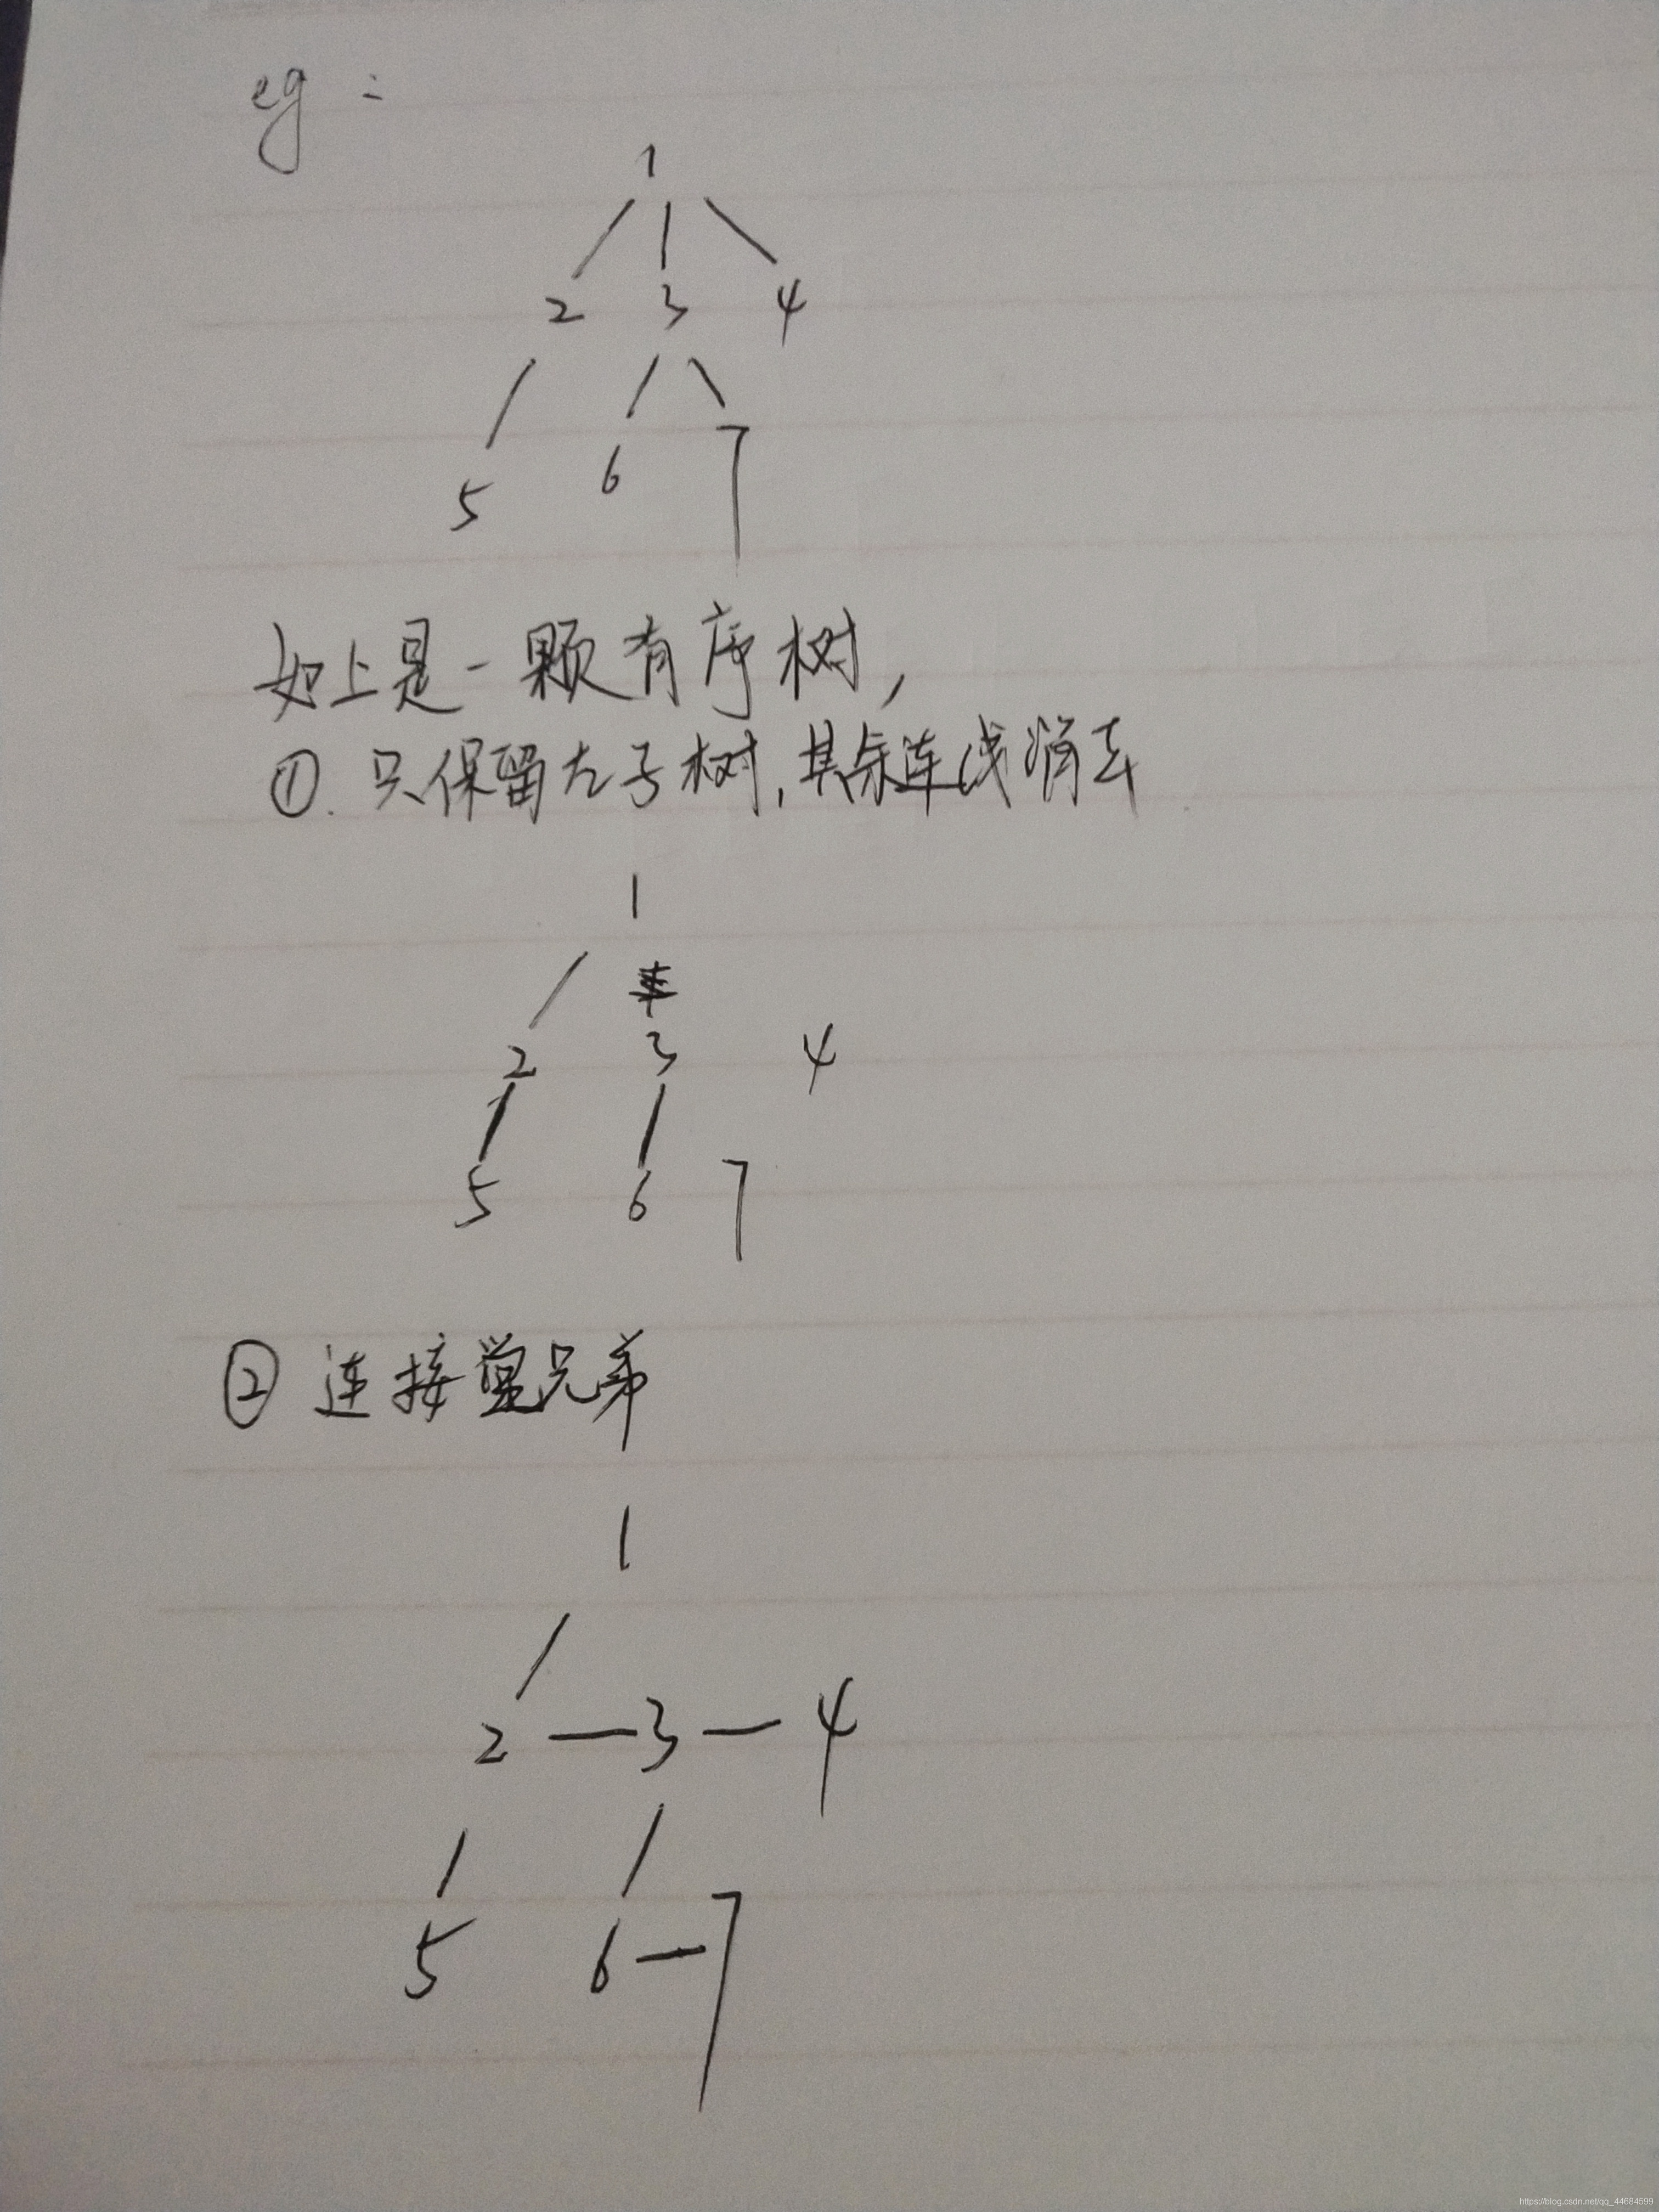 eg:
1
2 3 4
5 6 7
如上是一颗有序树,
①.只保留左子树,其余连线消去
1
2 3 4
5 6 7
② 连接堂兄弟
1
2 — 3 — 4
5 6 — 7
https://blog.csdn.net/qq_44684599